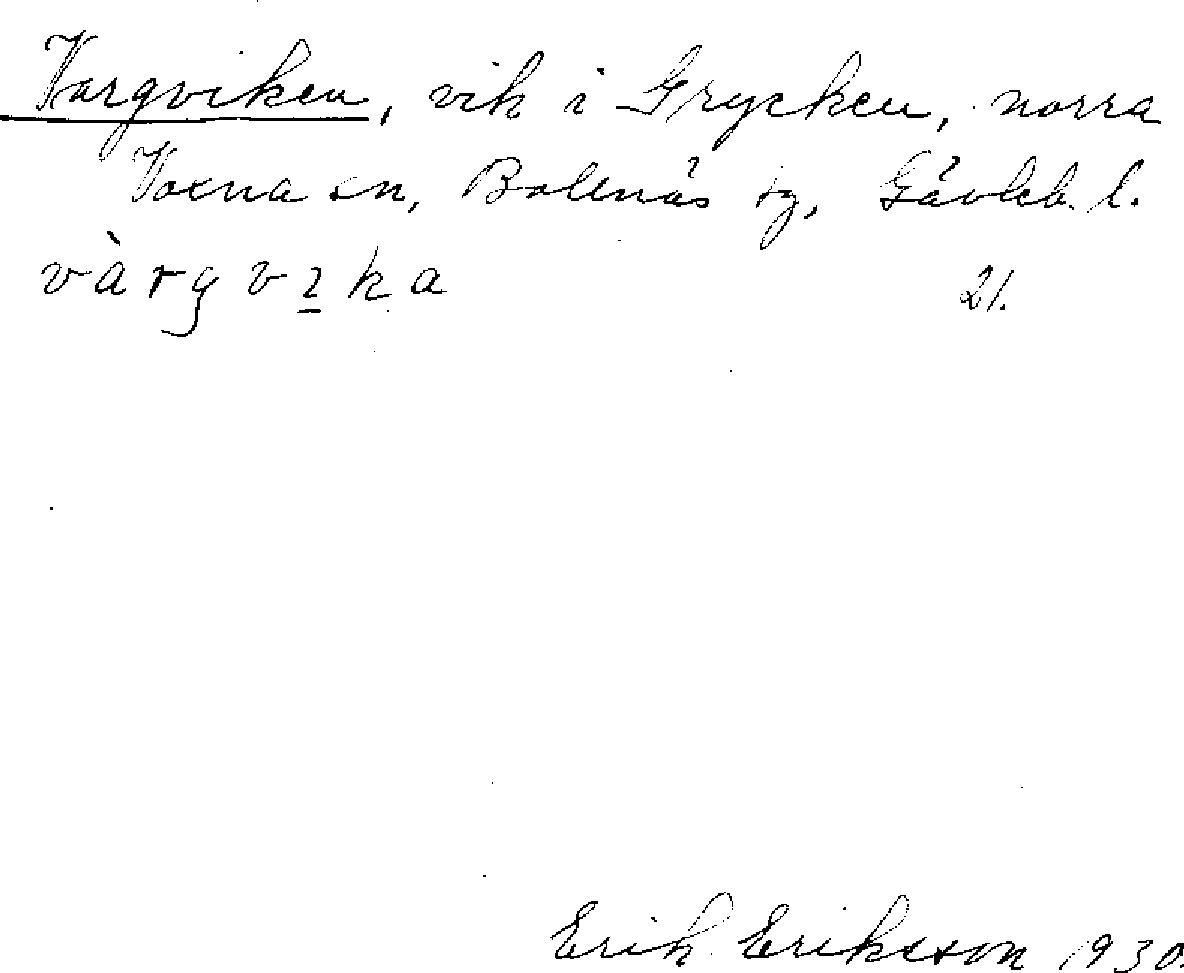 Vargviken, vik i Grycken, norra
Voxna sn, Bollnäs tg, Gävleb. l.
vàrgvika
21.
Erik Eriksson 1930.